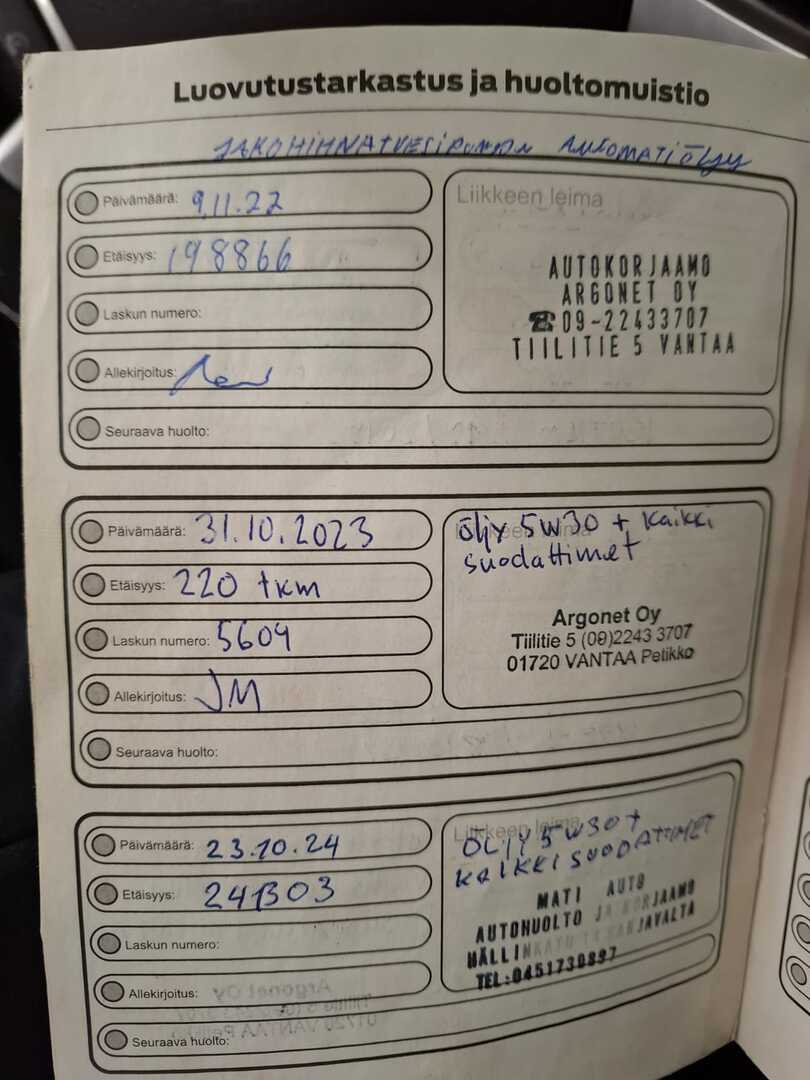 Luovutustarkastus ja huoltomuistio
JAKOHIHNATVESIPUMPPU AUTOMATIÖLJY
Päivämäärä: 9.11.22
Etäisyys: 198866
Laskun numero:
Allekirjoitus:
Seuraava huolto:
Liikkeen leima
AUTOKORJAAMO
ARGONET OY
☎09-22433707
TIILITIE 5 VANTAA
Päivämäärä: 31.10.2023
Etäisyys: 220 tkm
Laskun numero: 5604
Allekirjoitus: JM
Seuraava huolto:
Liikkeen leima
öljy 5W30 + kaikki
suodattimet
Argonet Oy
Tiilitie 5 (09)2243 3707
01720 VANTAA Petikko
Päivämäärä: 23.10.24
Etäisyys: 241303
Laskun numero:
Allekirjoitus:
Seuraava huolto:
Liikkeen leima
ÖLJY 5W30 +
KAIKKI SUODATTIMET
MATI AUTO
AUTOHUOLTO JA KORJAAMO
TEL:0451730897